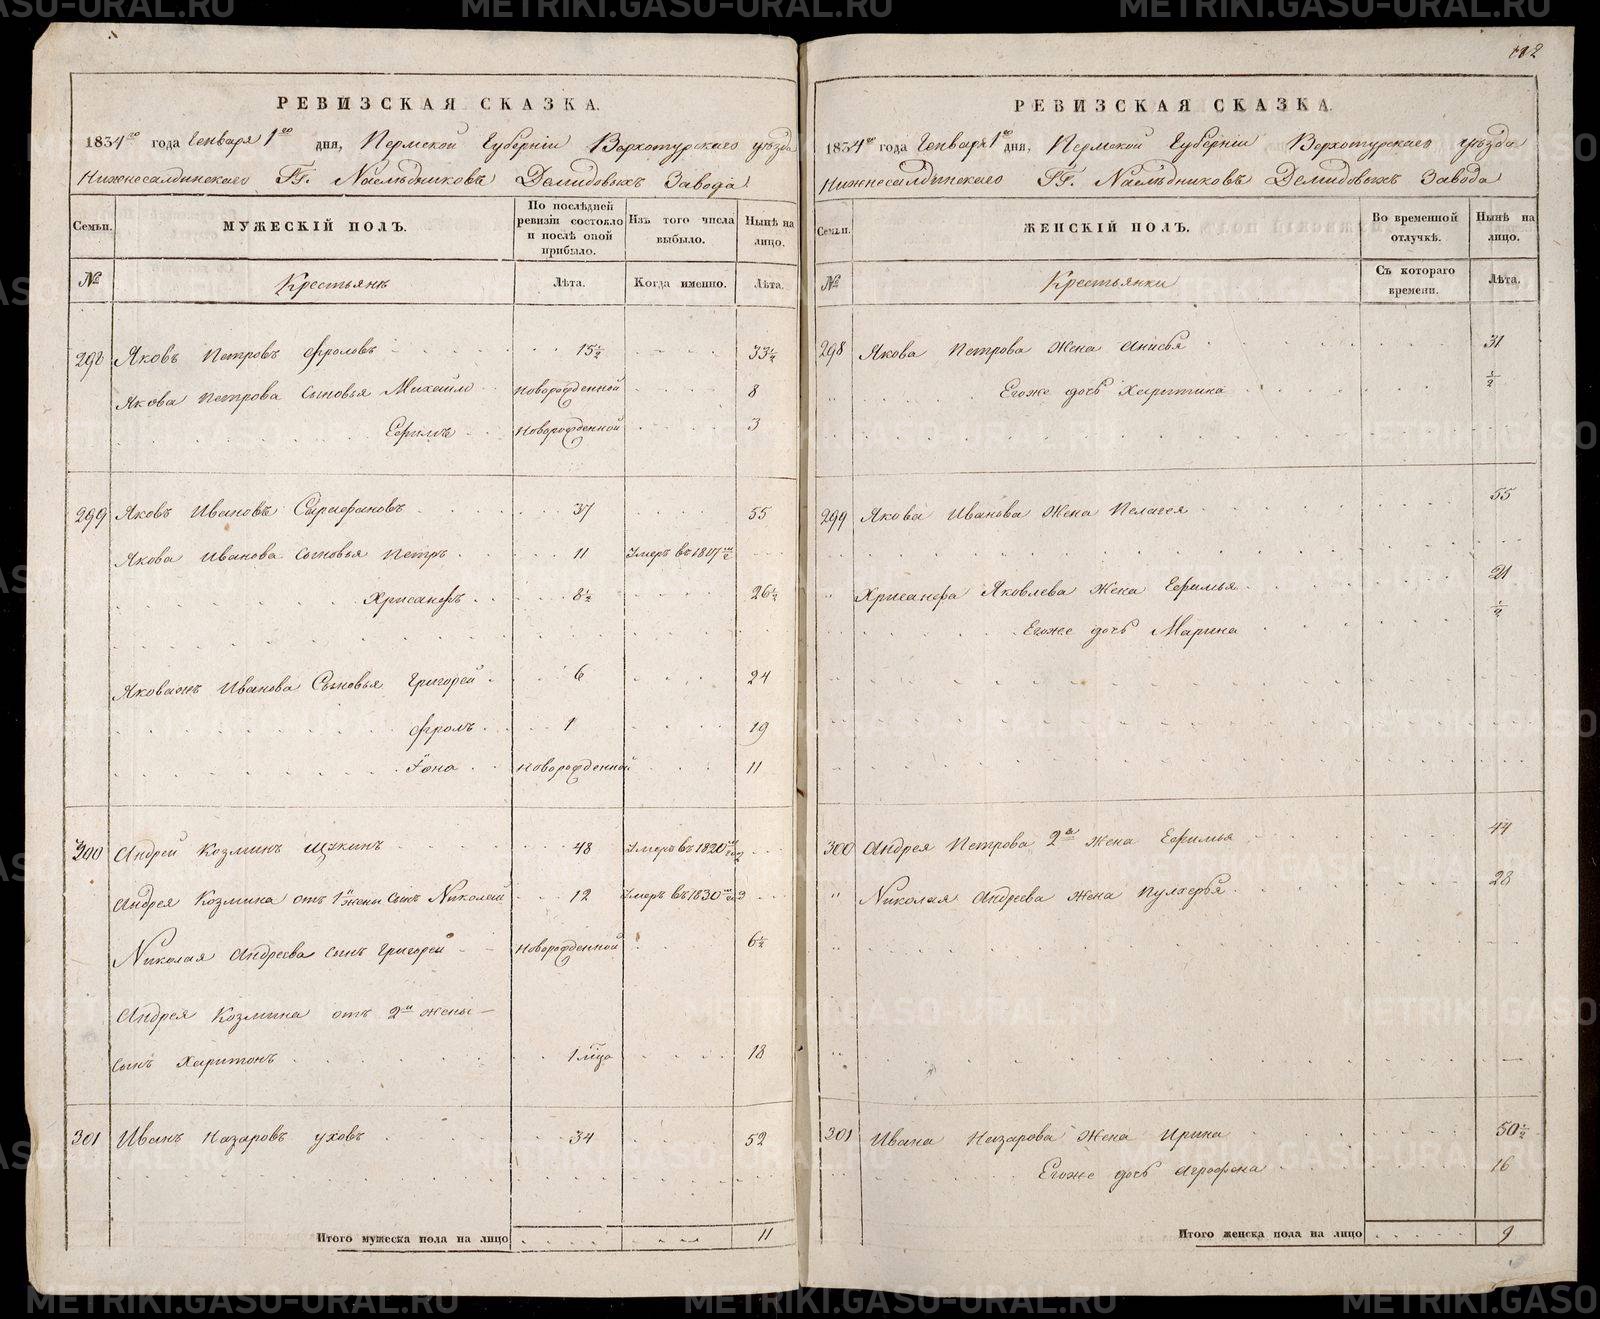 РЕВИЗСКАЯ СКАЗКА.
1834го года Генваря 1го дня, Пермской Губернiи Верхотурскаго уѣзда
Нижнесалдинскаго ГГ. Наслѣдниковъ Демидовыхъ Завода
Семьи.
МУЖЕСКIЙ ПОЛЪ.
По послѣдней ревизiи состояло и послѣ оной прибыло.
Изъ того числа выбыло.
Нынѣ на лицо.
№
Крестьянъ
Лѣта.
Когда именно.
Лѣта.
298 Яковъ Петровъ Фроловъ 15½ 33½
Якова Петрова сыновья Михайло Новорожденной 8
Ефимъ Новорожденной 3
299 Яковъ Ивановъ 37 55
Якова Иванова сыновья Петръ 11 Умеръ въ 1817м
Хрисанфъ 8½ 26½
Якова Иванова Сыновья Григорей 6 24
Фролъ 1 19
Iона Новорожденной 11
300 Андрей Козминъ Щукинъ 48 Умеръ въ 1820м
Андрея Козмина отъ 1й жены сынъ Николай 12 Умеръ въ 1830м
Николая Андреева сынъ Григорей Новорожденной 6½
Андрея Козмина отъ 2й жены
сынъ Харитонъ 1 мца 18
301 Иванъ Назаровъ Уховъ 34 52
Итого мужеска пола на лицо 11
112
РЕВИЗСКАЯ СКАЗКА.
1834го года Генваря 1го дня, Пермской Губернiи Верхотурскаго уѣзда
Нижнесалдинскаго ГГ. Наслѣдниковъ Демидовыхъ Завода
Семьи.
ЖЕНСКIЙ ПОЛЪ.
Во временной отлучкѣ.
Нынѣ на лицо.
№
Крестьянки
Съ котораго времени.
Лѣта.
298 Якова Петрова жена Анисья 31
Егоже дочь Харитина ½
299 Якова Иванова жена Пелагея 55
Хрисанфа Яковлева жена Ефимья 21
Егоже дочь Марина ½
300 Андрея Петрова 2я жена Ефимья 44
Николая Андреева жена Пулхерья 28
301 Ивана Назарова жена Ирина 50½
Егоже дочь Агрофена 16
Итого женска пола на лицо 9
METRIKI.GASO-URAL.RU